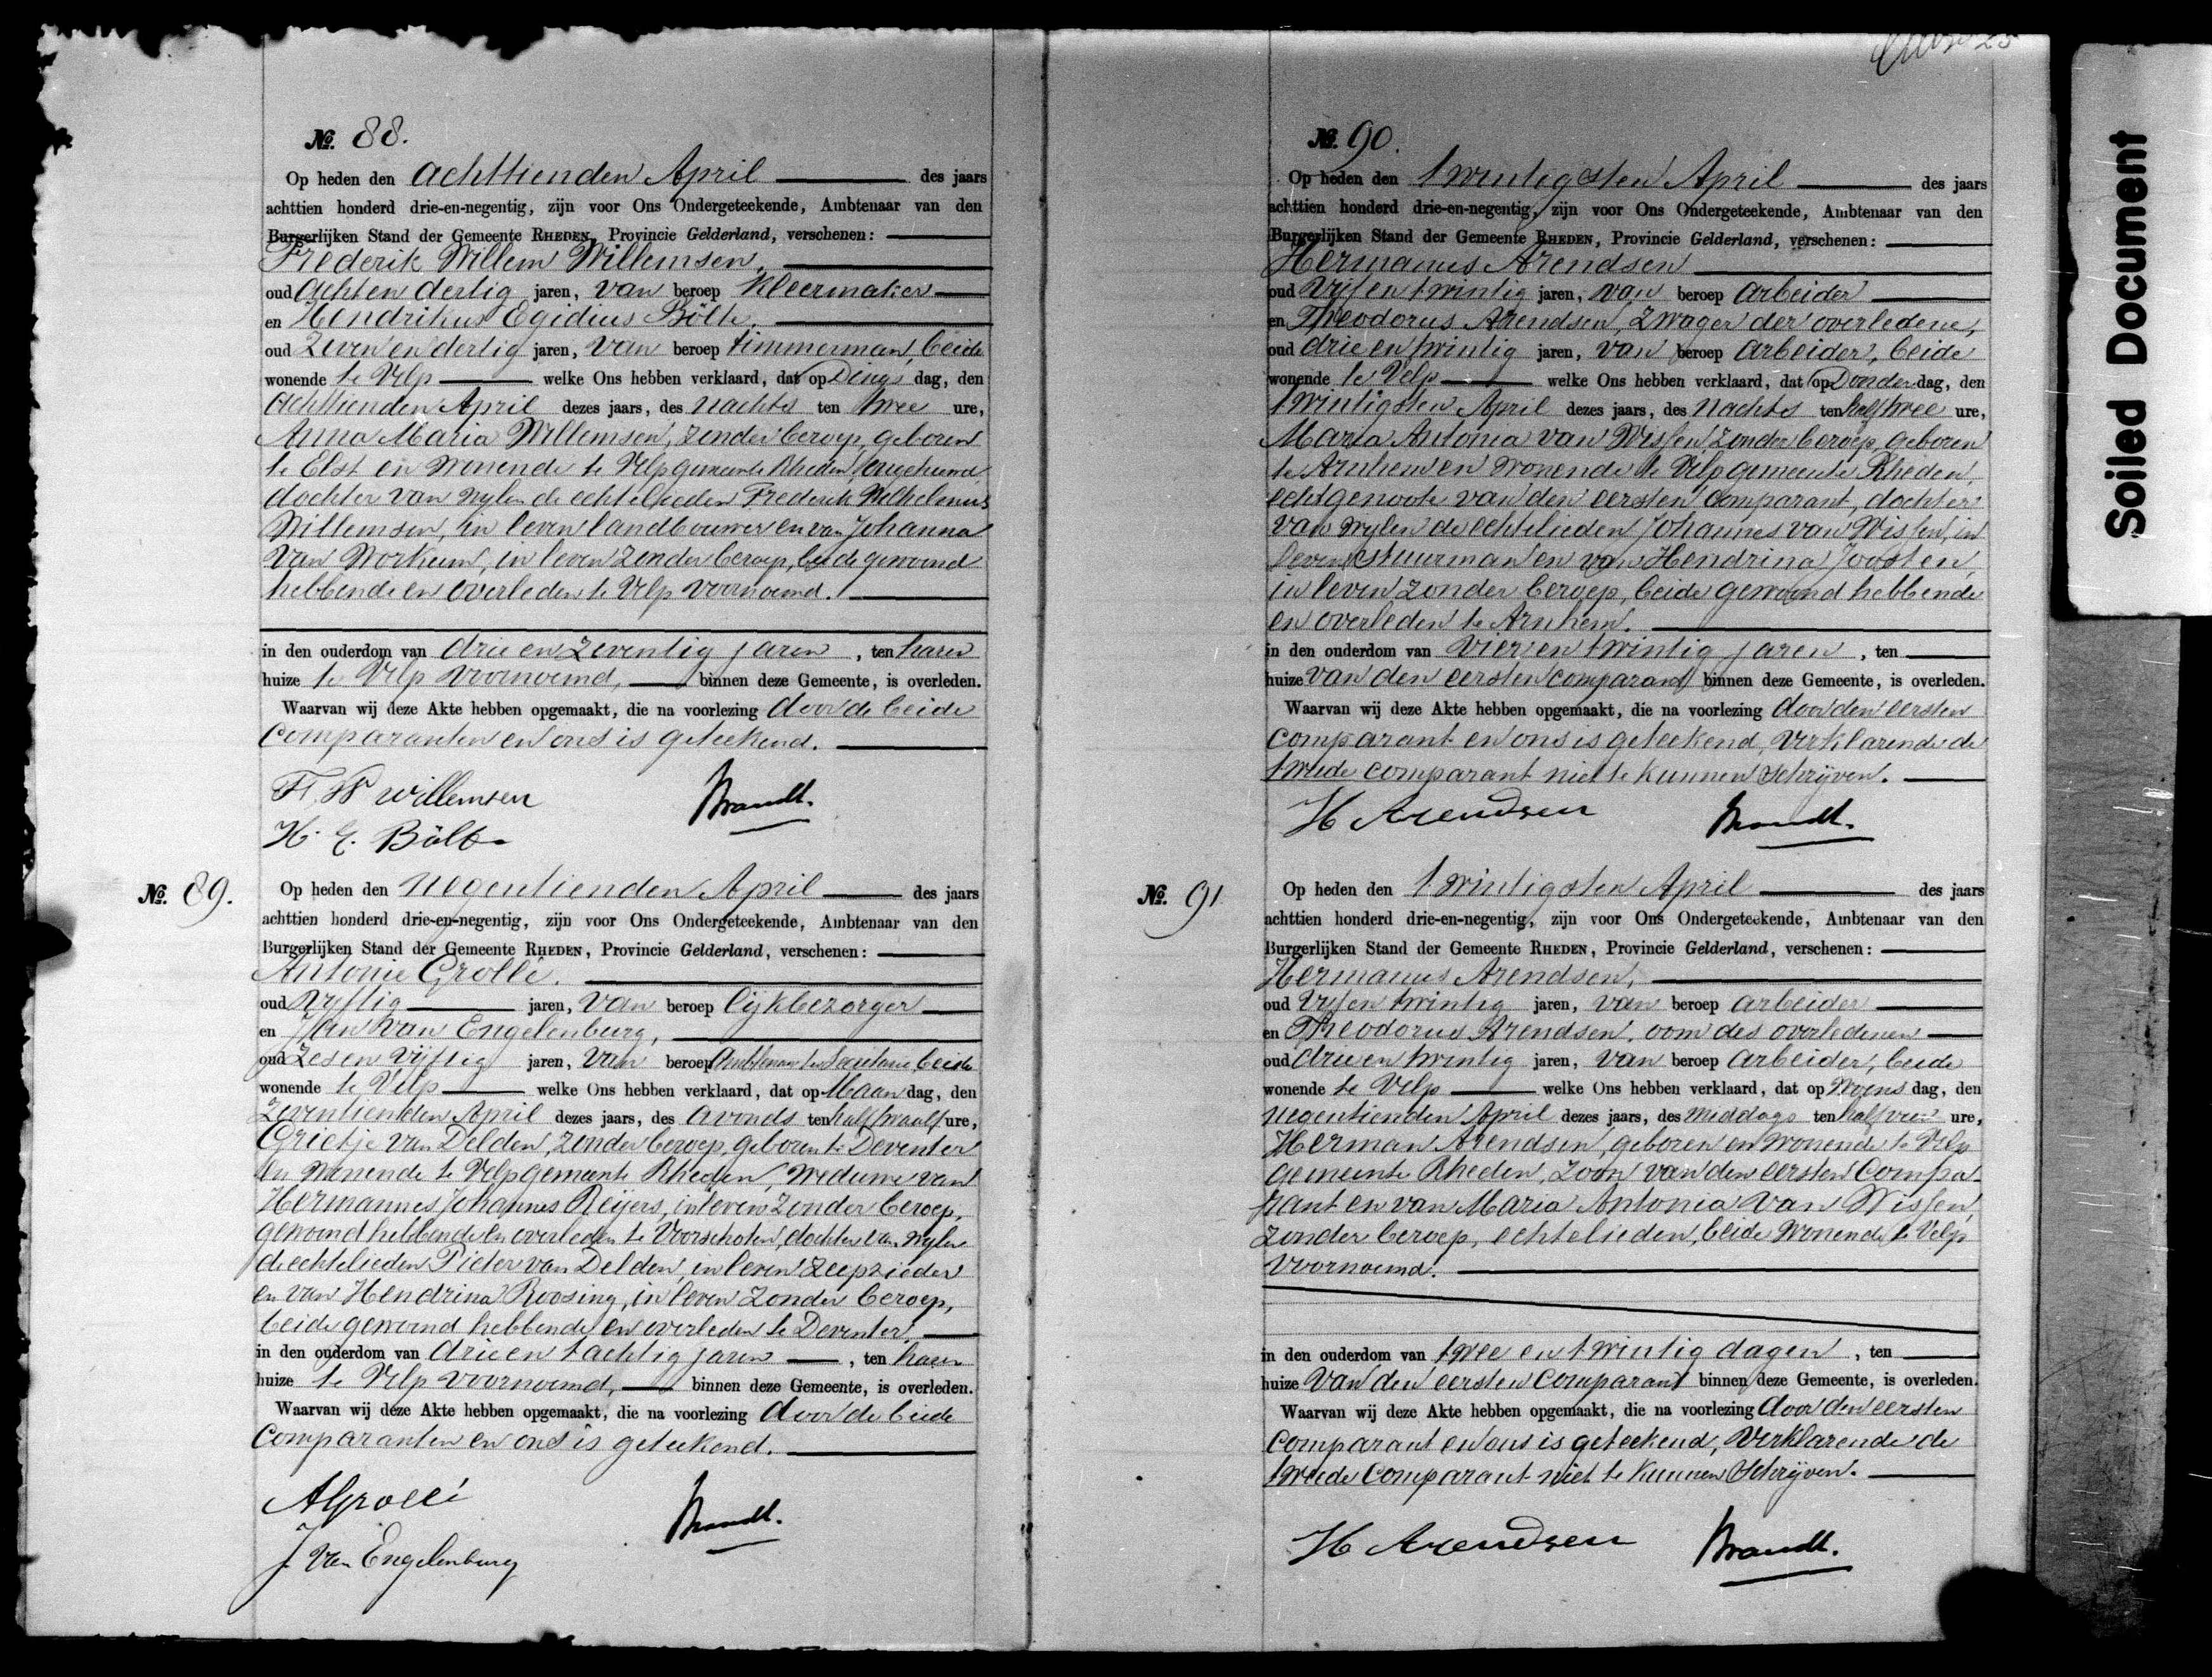 25
No. 88.
Op heden den achttienden April des jaars
achttien honderd drie-en-negentig, zijn voor Ons Ondergeteekende, Ambtenaar van den
Burgerlijken Stand der Gemeente RHEDEN, Provincie Gelderland, verschenen:
Frederik Willem Willemsen,
oud acht en dertig jaren, van beroep kleermaker
en Hendrikus Egidius Bölts,
oud zeven en dertig jaren, van beroep timmerman, beide
wonende te Velp welke Ons hebben verklaard, dat op Dings dag, den
achttienden April dezes jaars, des nachts ten twee ure,
Anna Maria Willemsen, zonder beroep, geboren
te Elst en wonende te Velp gemeente Rheden, ongehuwd,
dochter van wylen de echtelieden Frederik Wilhelmus
Willemsen, in leven landbouwer en van Johanna
van Workum, in leven zonder beroep, beide gewoond
hebbende en overleden te Velp voornoemd.
in den ouderdom van drie en zeventig jaren, ten haren
huize te Velp voornoemd, binnen deze Gemeente, is overleden.
Waarvan wij deze Akte hebben opgemaakt, die na voorlezing door de beide
comparanten en ons is geteekend.
F. W willemsen Brandt.
H. E. Bölts
No. 89.
Op heden den negentienden April des jaars
achttien honderd drie-en-negentig, zijn voor Ons Ondergeteekende, Ambtenaar van den
Burgerlijken Stand der Gemeente RHEDEN, Provincie Gelderland, verschenen:
Antonie Grollé.
oud vyftig jaren, van beroep lijkbezorger
en Jan van Engelenburg,
oud zes en vijftig jaren, van beroep Ambtenaar ter Secretarie, beide
wonende te Velp welke Ons hebben verklaard, dat op Maan dag, den
zeventienden April dezes jaars, des avonds ten half twaalf ure,
Grietje van Delden, zonder beroep, geboren te Deventer
en wonende te Velp gemeente Rheden, weduwe van
Hermannes Johannes Reijers, in leven zonder beroep,
gewoond hebbende en overleden te Voorschoten, dochter van wylen
de echtelieden Pieter van Delden, in leven zeepzieder
en van Hendrina Roosing, in leven zonder beroep,
beide gewoond hebbende en overleden te Deventer,
in den ouderdom van drie en tachtig jaren, ten haren
huize te Velp voornoemd, binnen deze Gemeente, is overleden.
Waarvan wij deze Akte hebben opgemaakt, die na voorlezing door de beide
comparanten en ons is geteekend.
AGrollé Brandt.
J. Van Engelenburg
No. 90.
Op heden den twintigsten April des jaars
achttien honderd drie-en-negentig, zijn voor Ons Ondergeteekende, Ambtenaar van den
Burgerlijken Stand der Gemeente RHEDEN, Provincie Gelderland, verschenen:
Hermanus Arendsen
oud vyf en twintig jaren, van beroep arbeider
en Theodorus Arendsen, zwager der overledene,
oud drie en twintig jaren, van beroep arbeider, beide
wonende te Velp welke Ons hebben verklaard, dat op Donder dag, den
twintigsten April dezes jaars, des nachts ten half twee ure,
Maria Antonia van Wissen, zonder beroep, geboren
te Arnhem en wonende te Velp gemeente Rheden,
echtgenoote van den eersten comparant, dochter
van wylen de echtelieden Johannes van Wissen, in
leven stuurman en van Hendrina Joosten,
in leven zonder beroep, beide gewoond hebbende
en overleden te Arnhem.
in den ouderdom van vier en twintig jaren, ten
huize van den eersten comparant binnen deze Gemeente, is overleden.
Waarvan wij deze Akte hebben opgemaakt, die na voorlezing door den eersten
comparant en ons is geteekend, verklarende de
tweede comparant niet te kunnen schrijven.
H Arendsen Brandt.
No. 91
Op heden den twintigsten April des jaars
achttien honderd drie-en-negentig, zijn voor Ons Ondergeteekende, Ambtenaar van den
Burgerlijken Stand der Gemeente RHEDEN, Provincie Gelderland, verschenen:
Hermanus Arendsen,
oud vyf en twintig jaren, van beroep arbeider
en Theodorus Arendsen, oom des overledenen
oud drie en twintig jaren, van beroep arbeider, beide
wonende te Velp welke Ons hebben verklaard, dat op Woens dag, den
negentienden April dezes jaars, des middags ten half vier ure,
Herman Arendsen, geboren en wonende te Velp
gemeente Rheden, zoon van den eersten compa-
rant en van Maria Antonia van Wissen,
zonder beroep, echtelieden, beide wonende te Velp
voornoemd.
in den ouderdom van twee en twintig dagen, ten
huize van den eersten comparant binnen deze Gemeente, is overleden.
Waarvan wij deze Akte hebben opgemaakt, die na voorlezing door den eersten
comparant en ons is geteekend, verklarende de
tweede comparant niet te kunnen schrijven.
H Arendsen Brandt.
Soiled Document